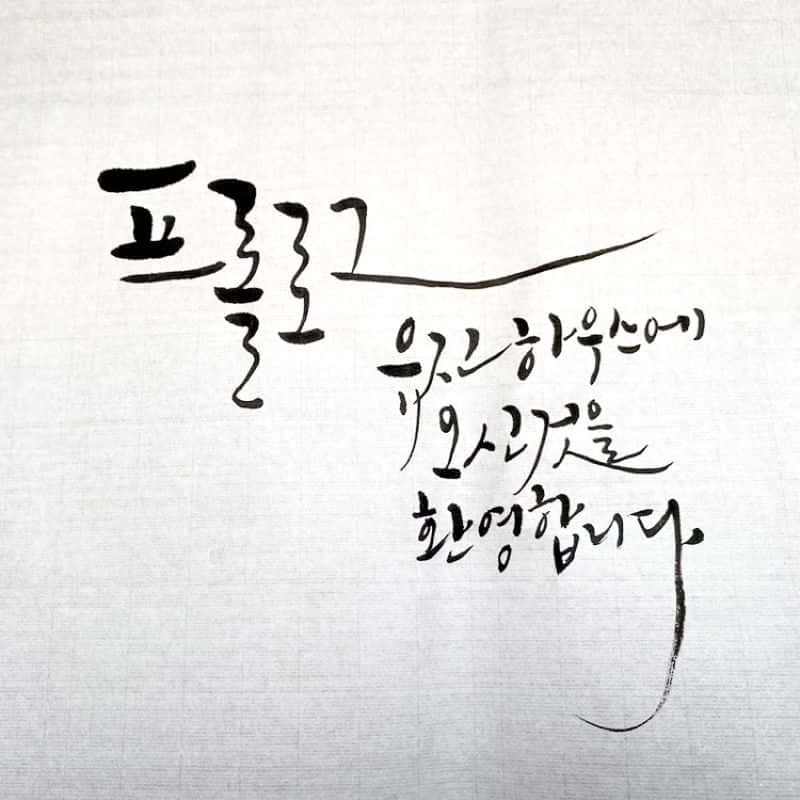 프롤로그
유진하우스에
오신것을
환영합니다